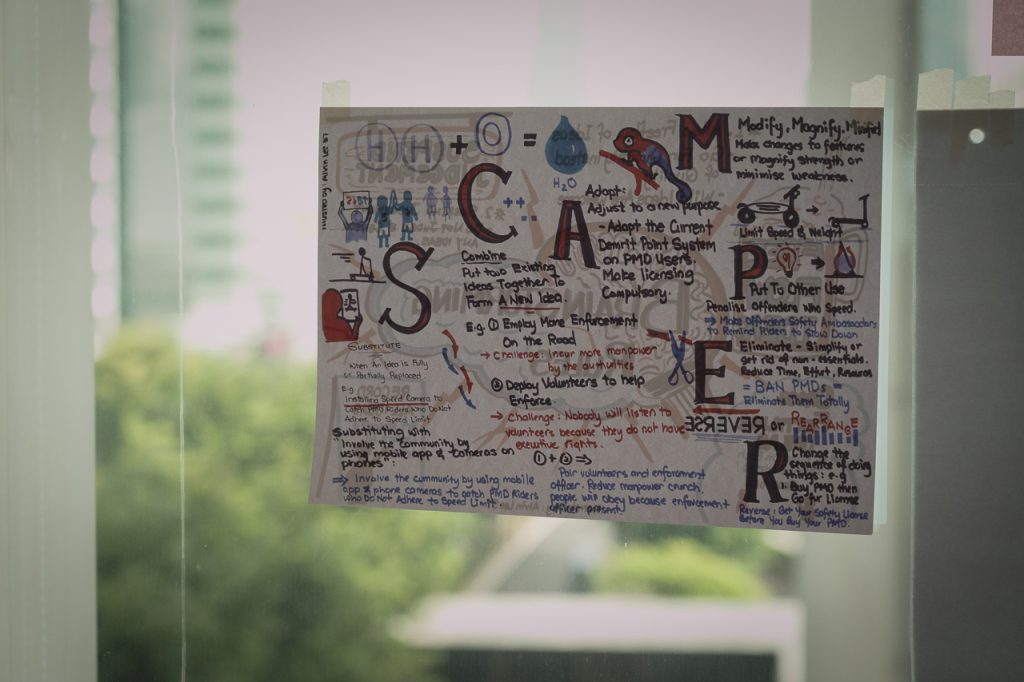 H H + O =
H₂O
S
SUBSTITUTE
When An Idea is Fully
or Partially Replaced
E.g.
Installing Speed Camera to
Catch PMD Riders Who Do Not
Adhere to Speed Limit
Substituting with
"Involve the community by
using mobile app & cameras on
phones":
⇒ Involve the community by using mobile
app & phone cameras to catch PMD Riders
who Do Not Adhere to Speed Limit.
C
Combine
Put two Existing
Ideas Together To
Form A New Idea.
E.g. ① Employ More Enforcement
On the Road
→ Challenge: Incur more manpower
by the authorities
② Deploy Volunteers to help
Enforce.
→ Challenge: Nobody will listen to
volunteers because they do not have
executive rights.
① + ② ⇒
Pair volunteers and enforcement
officer. Reduce manpower crunch,
people will obey because enforcement
officer present
A
Adapt:
Adjust to a new purpose
- Adapt the Current
Demrit Point System
on PMD Users.
Make licensing
Compulsory.
M
Modify, Magnify, Minified
Make changes to features
or magnify strength or
minimise weakness.
Limit Speed & Weight
P
Put To Other Use
Penalise Offenders Who Speed.
→ Make Offenders Safety Ambassadors
to Remind Riders to Slow Down
E
Eliminate - Simplify or
get rid of non-essentials.
Reduce Time, Effort, Resources
= BAN PMDs =
Eliminate Them Totally
REVERSE or REARRANGE
R
Change the
sequence of doing
things: e.g
Buy PMD then
Go for License
Reverse: Get Your Safety License
Before You Buy Your PMD.